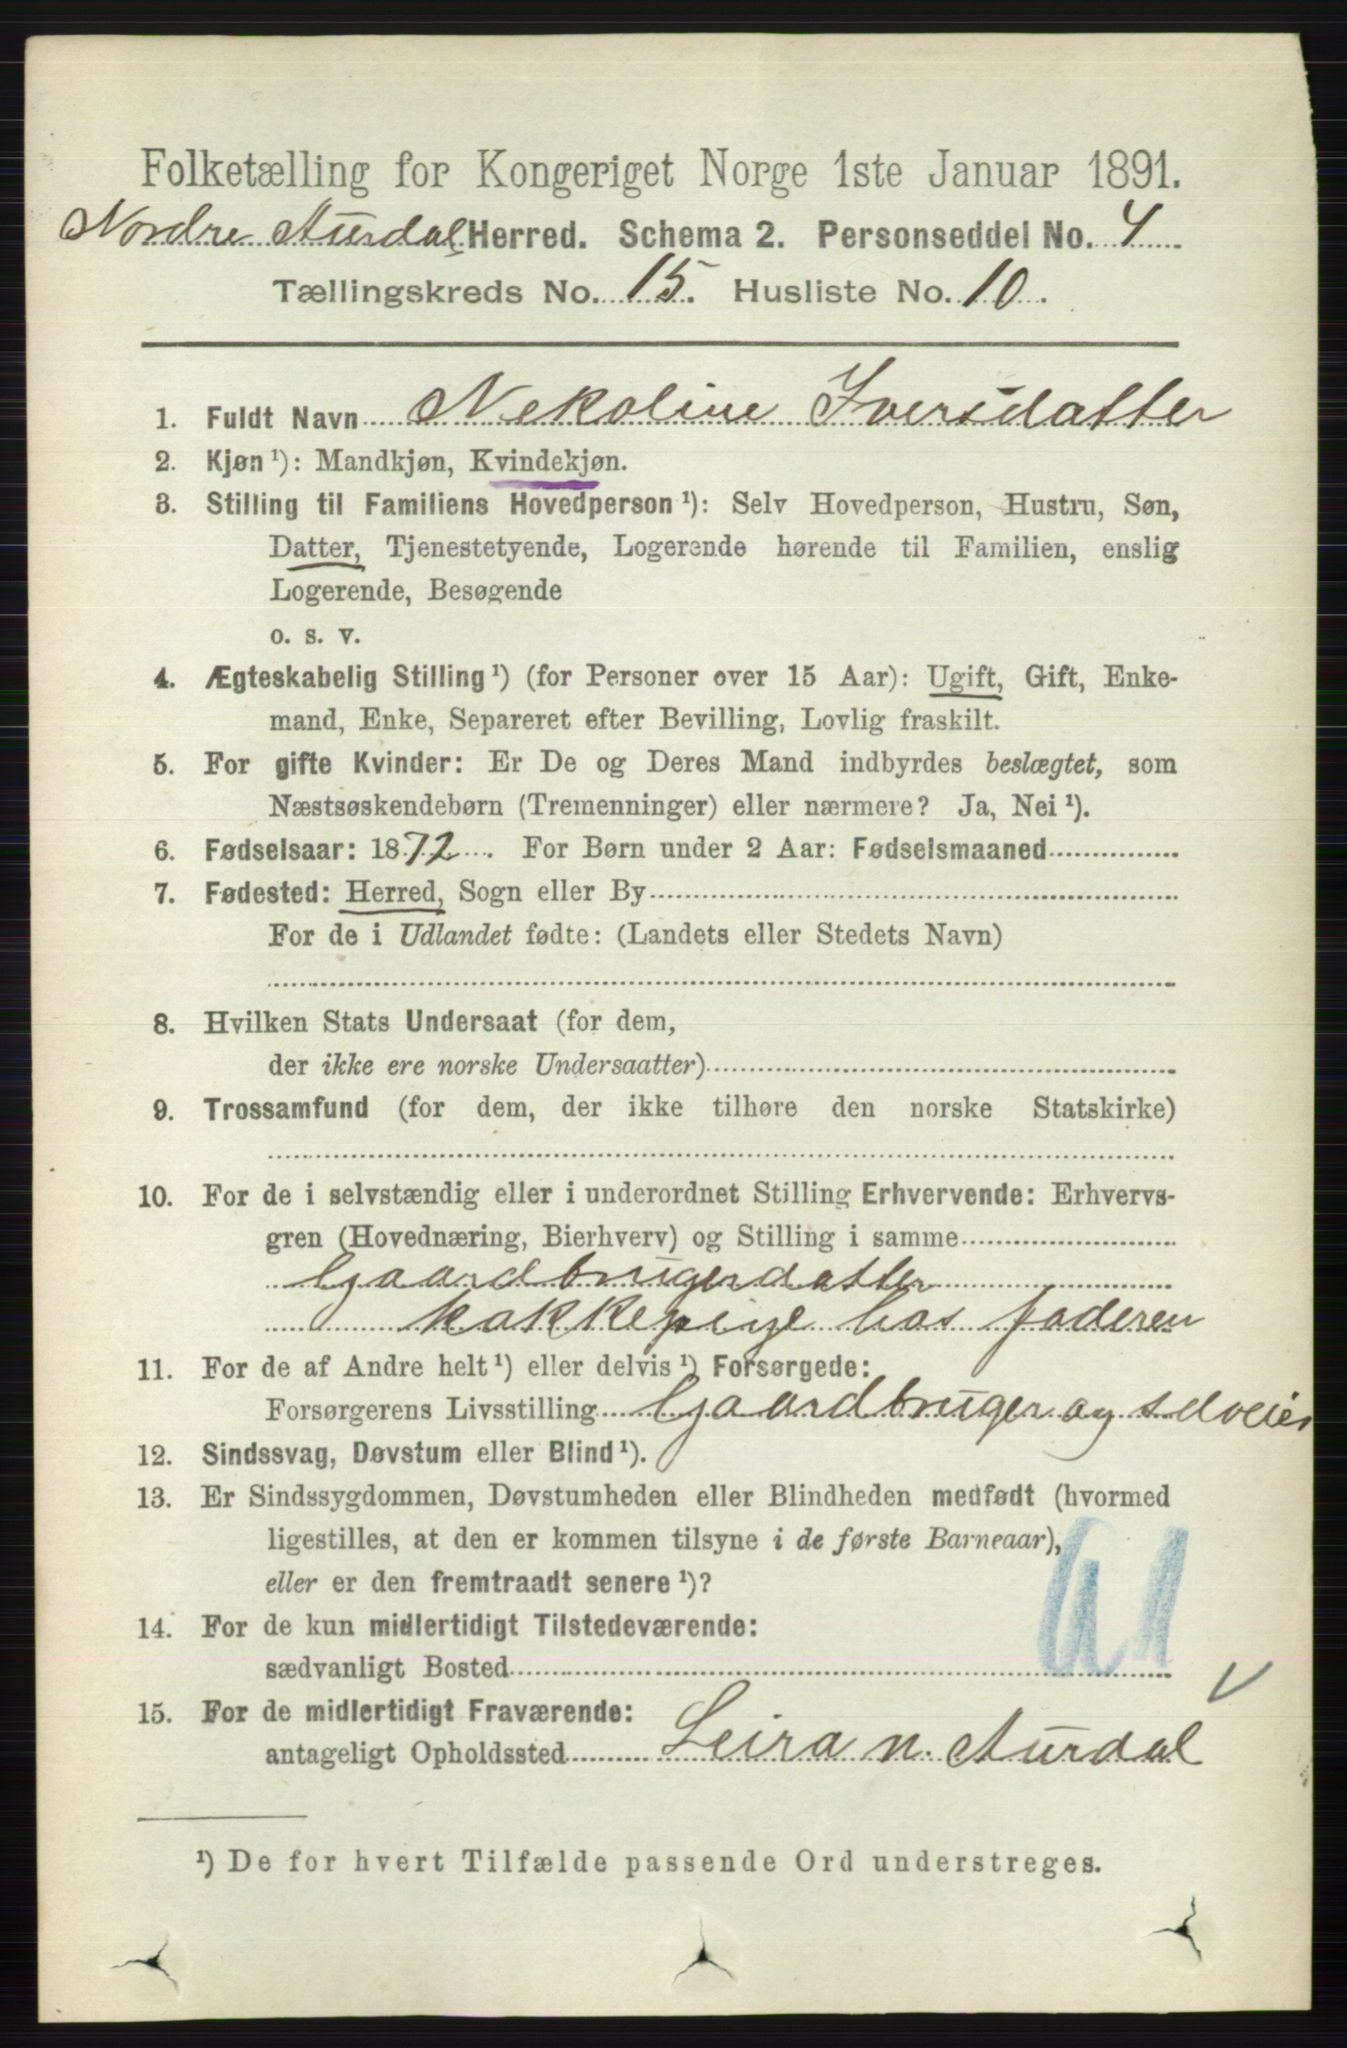 Folketælling for Kongeriget Norge 1ste Januar 1891.
Nordre Aurdal Herred. Schema 2. Personseddel No. 4
Tællingskreds No. 15. Husliste No. 10.
1. Fuldt Navn Nekoline Iversdatter
2. Kjøn ¹): Mandkjøn, Kvindekjøn.
3. Stilling til Familiens Hovedperson ¹): Selv Hovedperson, Hustru, Søn,
Datter, Tjenestetyende, Logerende hørende til Familien, enslig
Logerende, Besøgende
o. s. v.
4. Ægteskabelig Stilling ¹) (for Personer over 15 Aar): Ugift, Gift, Enke-
mand, Enke, Separeret efter Bevilling, Lovlig fraskilt.
5. For gifte Kvinder: Er De og Deres Mand indbyrdes beslægtet, som
Næstsøskendebørn (Tremenninger) eller nærmere? Ja, Nei ¹).
6. Fødselsaar: 1872. For Børn under 2 Aar: Fødselsmaaned
7. Fødested: Herred, Sogn eller By
For de i Udlandet fødte: (Landets eller Stedets Navn)
8. Hvilken Stats Undersaat (for dem,
der ikke ere norske Undersaatter)
9. Trossamfund (for dem, der ikke tilhøre den norske Statskirke)
10. For de i selvstændig eller i underordnet Stilling Erhvervende: Erhvervs-
gren (Hovednæring, Bierhverv) og Stilling i samme
Gaardbrugerdatter
kokkepige hos faderen
11. For de af Andre helt ¹) eller delvis ¹) Forsørgede:
Forsørgerens Livsstilling Gaardbruger og selveier
12. Sindssvag, Døvstum eller Blind ¹).
13. Er Sindssygdommen, Døvstumheden eller Blindheden medfødt (hvormed
ligestilles, at den er kommen tilsyne i de første Barneaar),
eller er den fremtraadt senere ¹)?
14. For de kun midlertidigt Tilstedeværende:
sædvanligt Bosted
15. For de midlertidigt Fraværende:
antageligt Opholdssted Leira n. Aurdal
¹) De for hvert Tilfælde passende Ord understreges.